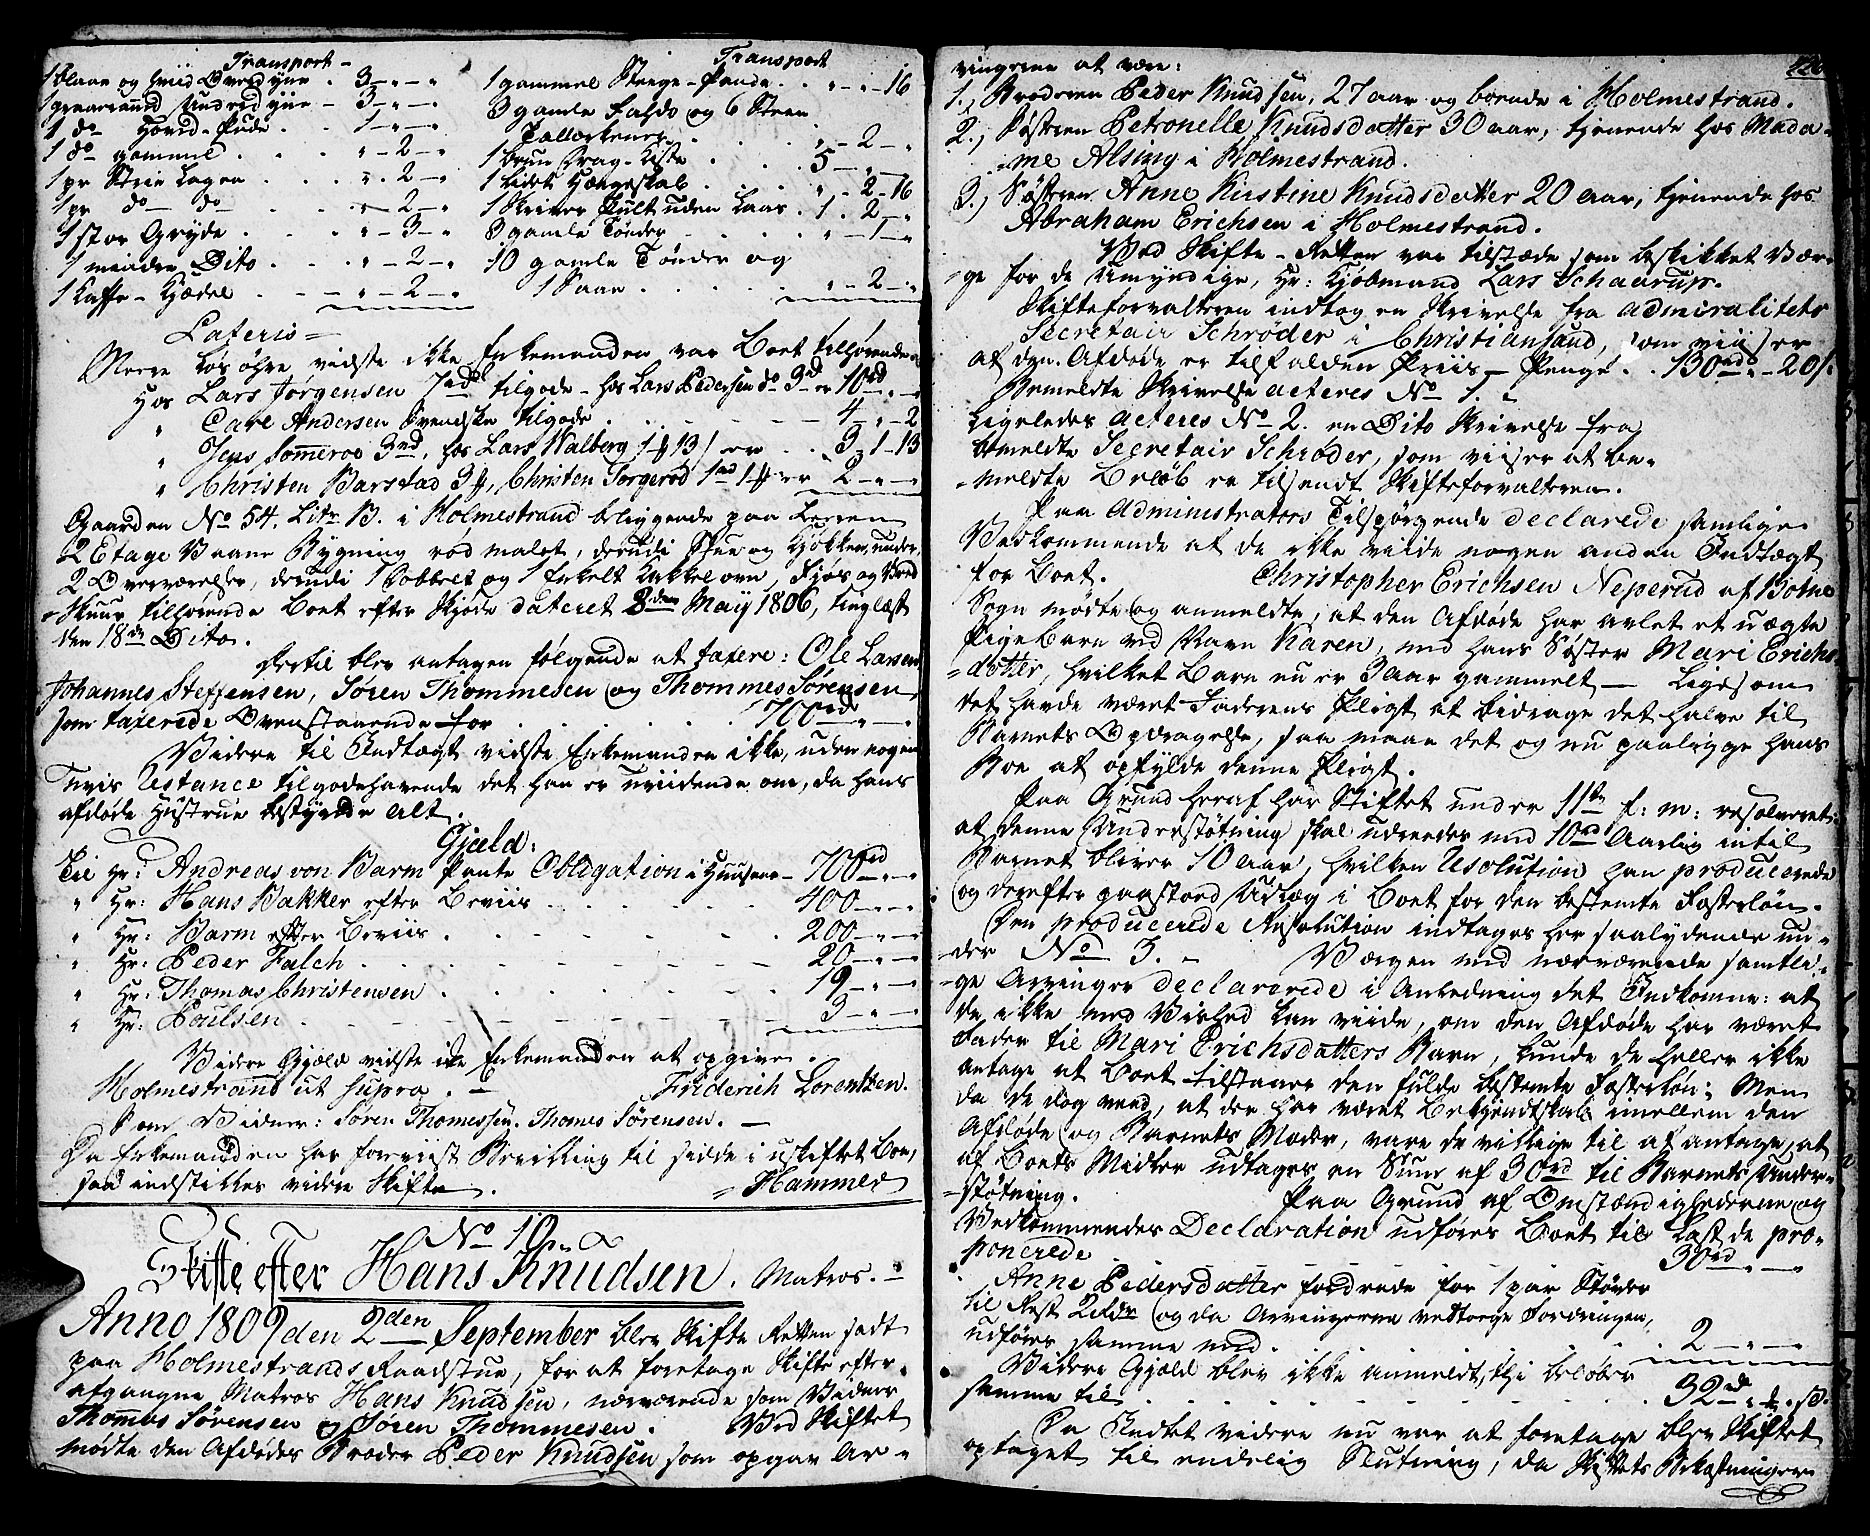 Transport
1 blaae og hviid Overdyne . 3 - " - "
1 graarandet Underdyne - 3 - " - "
1 do Hoved-Pude . . 1 - " - "
1 do gammel . . . " - 2 - "
1 pr Strie Lagen . . . " - 2 - "
1 pr do do . . . " - 2 - "
1 stor Gryde . . . " - 3 - "
1 mindre Dito . . . " - 2 - "
1 Kaffe-Kjedel . . - " - 2 - "
Transport
1 gammel Steege-Pande . . " - " - 16
3 gamle Fade og 6 Steen
Tallerkener . . . " - 2 - "
1 bruun Drag-Kiste . . . 5 - " - "
1 lidet Hængeskab . . . " - 2 - 16
1 Skriver Pult uden Laas . 1 . 2 - "
3 gamle Tønder . . . " - 1 - "
10 gamle Tønder og
1 Saae . . . " - 2 - "
Lateris
Meere Løsøhre vidste ikke Enkemanden var Boet tilhørende
Hos Lars Jørgensen 7rd tilgode - hos Lars Pedersen do 3rd er 10rd " - "
" Carl Andersen Svendske tilgode . . . 4 - " - 2
" Jens Sommeroe 3rd, hos Lars Walberg 1 # 13 / er . . 3 - 1 - 13
" Christen Barstad 3 #, Christen Torgerød 1rd 1 # er 2 - " - "
Gaarden No 54. Litr. B. i Holmestrand beliggende paa Leeren
2 Etage Vaane Bygning rød malet, derudi Stue og Kjøkken, under,
2 Overværelser, derudi 1 dobbelt og 1 Enkelt Kakkelovn, Fjøs og Vred
-Skuur tilhørende Boet efter Skjøde dateret 8den Maÿ 1806, tinglæst
den 18de Dito.
Hertil blev antagen følgende at taxere: Ole Larsen
Johannes Steffensen, Søren Thommesen og Thommes Sørensen
som taxerede Ovenstaaende for . . . 700rd " - "
Videre til Indtægt vidste Enkemanden ikke, uden nogen
Tvis Ustance tilgodehavende det han er uviidende om, da hans
afdøde Hustrue bestyrede alt.
Gjæld:
Til Hr: Andreas von Barm Pante Obligation i Huusene - 700rd " - "
" Hr: Hans Bakker efter Beviis . . . 400 - " - "
" Hr: Barm efter Beviis . . . 200 - " - "
" Hr: Peder Falch . . . 20 - " - "
" Hr: Thomas Christensen . . . 19 - " - "
" Hr: Poulsen . . . 3 - " - "
Videre Gjæld vidste ikke Enkemanden at opgive.
Holmestrand ut supra. - Friderich Lorentzen.
Som Vidner: Søren Thomessen. Thomes Sørensen. -
Da Enkemanden har foreviist Bevilling til sidde i uskiftet Boe,
saa indstilles videre Skifte. = Hammer
No 10.
Skifte efter Hans Knudsen. Matros. -
Anno 1809 den 2den September blev Skifte Retten sadt
paa Holmestrands Raadstue, for at foretage Skifte efter
afgangne Matros Hans Knudsen, nærværende som Vidner
Thomas Sørensen og Søren Thommesen. Ved Skiftet
mødte den Afdødes Broder Peder Knudsen som opgav Ar-
vingerne at være:
1., Broderen Peder Knudsen, 27 aar og boende i Holmestrand.
2., Søsteren Petronelle Knudsdatter 30 aar, tjenende hos Mada-
-me Alsing i Holmestrand.
3., Søsteren Anne Kirstine Knudsdatter 20 aar, tjenende hos
Abraham Erichsen i Holmestrand.
Ved Skifte-Retten var tilstæde som beskikket Vær-
-ge for de umyndige, Hr: Kjøbmand Lars Schaarup.
Skifteforvalteren indtog en Skrivelse fra Admiralitets
Secretair Schrøder i Christiansand, som viiser
at den Afdøde er tilfalden Priis-Penge . . 130rd " - 20 /:
Bemeldte Skrivelse acteres No 1.
Ligeledes acteres No 2. en Dito Skrivelse fra
bemeldte Secretair Schrøder, som viiser at be-
-meldte Beløb er tilsendt Skifteforvalteren.
Paa Administrators Tilspørgende declarede samlige
Vedkommende at de ikke viide nogen anden Indtægt
for Boet. Christopher Erichsen Neperud af Botne
Sogn mødte og anmeldte, at den Afdøde har avlet et uægte
Pigebarn ved Navn Karen, med hans Søster Mari Erichs
=datter, hvilket Barn nu er 3 aar gammelt - Ligesom
det havde været Faderens Pligt at bidrage det halve til
Barnets Opdragelse, saa maae det og nu paaligge hans
Boe at opfylde denne Pligt.
Paa Grund heraf har Stiftet under 11te f: m: resolveret:
at denne Understøtning skal udredes med 10rd Aarlig intil
Barnet bliver 10 aar, hvilken Resolution han producerede
og derefter paastoed Udlæg i Boet for den bestemte Fosterløn.
Den producerede Resolution indtages her saalydende un-
-der No 3. - Værgen med nærværende samtli-
-ge Arvinger declarerede i Anledning det Indkomne: at
de ikke med Vished kan viide, om den Afdøde har været
Fader til Mari Erichsdatters Barn, kunde de heller ikke
antage at Boet tilstaaer den fulde bestemte Fosterløn; Men
da de dog veed, at der har været Bekjendtskab imellem den
Afdøde og Barnets Moder, vare de villige til at antage, at
af Boets Midler udtages en Sum af 30rd til Barnets Under-
-støtning. Paa Grund af Omstændighederne og
Vedkommendes Declaration udføres Boet til Last de pro-
ponerede 30rd " - "
Anne Pedersdatter fordrede for 1 par Støvler
til Rest 2rdr og da Arvingerne vedtoege Fordringen,
udføres samme med . . . 2 - " - "
Videre Gjæld blev ikke anmeldt, thi beløber
samme til . . . 32rd " # " s.
Da Intet videre nu var at foretage blev Skiftet
optaget til endelig Slutning, da Skiftets Bekostninger